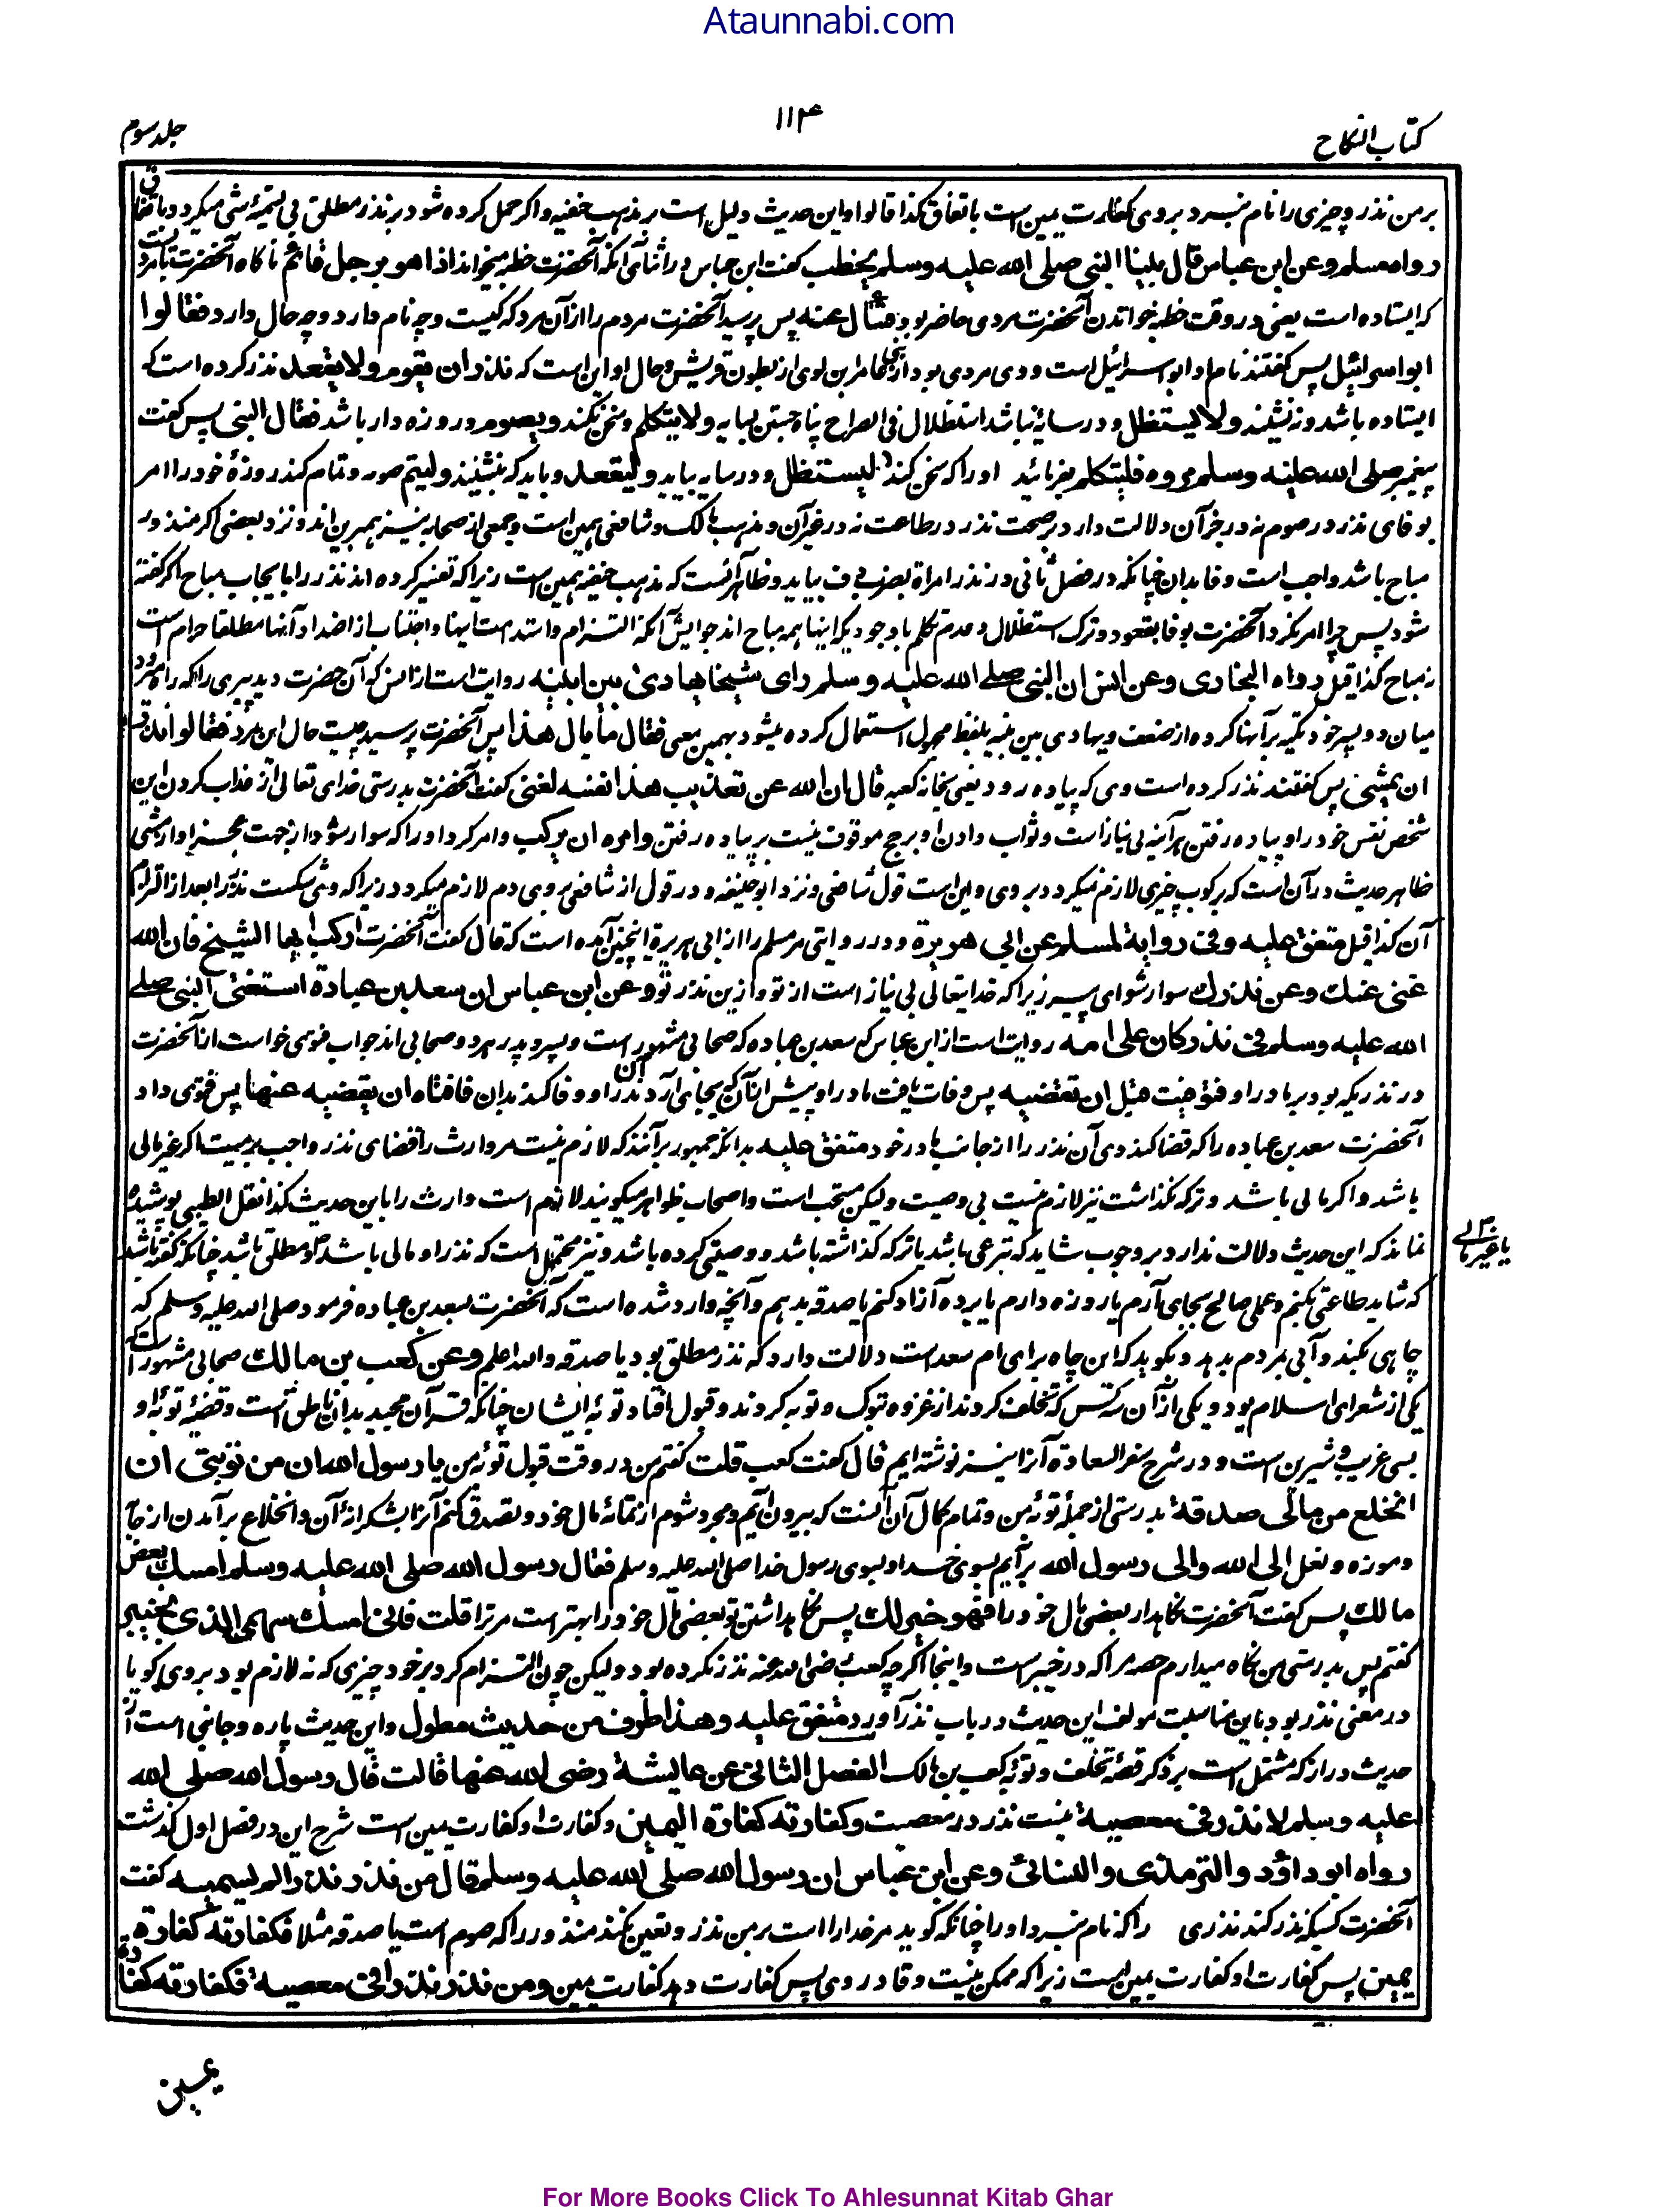 Ataunnabi.com
کتاب النکاح ۱۱۴ جلد سوم
بر من نذر و چیزی را نام نبرد بروی کفارت یمین است باتفاق کذا قالوا و این حدیث دلیل است بر مذهب حنفیه و اگر حمل کرده شود بر نذر مطلق بی تسمیهٔ شی میگردد باتفاق
رواه مسلم وعن ابن عباس قال بینا النبی صلی الله علیه وسلم یخطب گفت ابن عباس در اثنای آنکه آنحضرت خطبه میخواند اذا هو برجل قائم ناگاه آنحضرت بامردیست
که ایستاده است یعنی در وقت خطبه خواندن آنحضرت مردی حاضر بود فسأل عنه پس پرسید آنحضرت مردم را از آن مرد که کیست و چه نام دارد و چه حال دارد فقالوا
ابو اسرائیل پس گفتند نام او ابو اسرائیل است و وی مردی بود از بنی عامر بن لوی از بطون قریش و حال او این است که نذر ان یقوم ولا یقعد نذر کرده است که
ایستاده باشد و نه نشیند ولا یستظل و در سایه نباشد استظلال فی الصراح پناه جستن بسایه ولا یتکلم و سخن نکند ویصوم و روزه دار باشد فقال النبی پس گفت
پیغمبر صلی الله علیه وسلم مروه فلیتکلم بفرمائید او را که سخن کند ولیستظل و در سایه بیاید ولیقعد و باید که بنشیند ولیتم صومه و تمام کند روزهٔ خود را امر
بوفای نذر در صوم نه در جز آن دلالت دارد بر صحت نذر در طاعت نه در غیر آن و مذهب مالک و شافعی همین است و جمعی از صحابه نیز همبرین اند و نزد بعضی اگر منذور
مباح باشد واجب است وفا بدان چنانکه در فصل ثانی در نذر امرأة بضرب دف بیاید و ظاهر آنست که مذهب حنفیه همین است زیرا که تفسیر کرده اند نذر را بایجاب مباح اگر گفته
شود پس چرا امر نکرد آنحضرت بوفا بقعود و ترک استظلال و عدم تکلم باوجود یکه اینها همه مباح اند جوابش آنکه التزام و استدامت اینها و اجتناب از اضداد آنها مطلقا حرام است
نه مباح کذا قیل رواه البخاری وعن انس ان النبی صلے الله علیه وسلم رای شیخا یهادی بین ابنیه روایت است از انس که آن حضرت دید پیری را که راه میرود
میان دو پسر خود تکیه بر آنها کرده از ضعف و یهادی بین ابنیه بلفظ مجهول استعمال کرده میشود بهمین معنی فقال ما بال هذا پس آنحضرت پرسید چیست حال این مرد فقالوا نذر
ان یمشی پس گفتند نذر کرده است وی که پیاده رود یعنی بخانه کعبه قال ان الله عن تعذیب هذا نفسه لغنی گفت آنحضرت بدرستی خدای تعالی از عذاب کردن این
شخص نفس خود را و پیاده رفتن هر آینه بی نیاز است و ثواب دادن او بر حج موقوف نیست بر پیاده رفتن وامره ان یرکب و امر کرد او را که سوار شود از جهت عجز او از مشی
ظاهر حدیث در آن است که برکوب چیزی لازم نمیگردد بروی و این است قول شافعی و نزد ابوحنیفه و در قول از شافعی بروی دم لازم میگردد زیرا که وی شکست نذر را بعد از التزام
آن کذا قیل متفق علیه وفی روایة لمسلم عن ابی هریرة و در روایتی مر مسلم را از ابی هریرة اینچنین آمده است که قال گفت آنحضرت ارکب ایها الشیخ فان الله
غنی عنک وعن نذرک سوار شو ای پیر زیرا که خدایتعالی بی نیاز است از تو و از ین نذر تو وعن ابن عباس ان سعد بن عبادة استفتی النبی صلے
الله علیه وسلم فی نذر کان علی امه روایت است از ابن عباس که سعد بن عباده که صحابی مشهور است و پسر و پدر هر دو صحابی اند جواب فتوی خواست از آنحضرت
در نذریکه بود بر مادر او فتوفیت قبل ان تقضیه پس وفات یافت مادر او پیش از آنکه بجای آرد آن نذر او و وفا کند بدان فافتاه ان یقضیه عنها پس فتوی داد
آنحضرت سعد بن عباده را که قضا کند وی آن نذر را از جانب مادر خود متفق علیه بدانکه جمهور بر آنند که لازم نیست مر وارث را قضای نذر واجب بر میت اگر غیر مالی
باشد و اگر مالی باشد و ترکه نگذاشت نیز لازم نیست بی وصیت ولیکن مستحب است و اصحاب ظواهر میگویند لازم است وارث را باین حدیث کذا نقل الطیبی پوشیده
نماند که این حدیث دلالت ندارد بر وجوب شاید که تبرعی باشد یا ترکه گذاشته باشد و وصیتی کرده باشد و نیز محتمل است که نذر او مالی باشد و مطلق باشد چنانکه گفته باشد
یا غیر مالی
که شاید طاعتی بکنم و عملی صالح بجای آرم یا روزه دارم یا برده آزاد کنم یا صدقه بدهم و آنچه وارد شده است که آنحضرت بسعد بن عباده فرمود صلی الله علیه وسلم که
چاهی بکند و آبی بمردم بدهد و بگوید که این چاه برای ام سعد است دلالت دارد که نذر مطلق بود یا صدقه والله اعلم وعن کعب بن مالک صحابی مشهور است
یکی از شعرای اسلام بود و یکی از آن سه کس که تخلف کردند از غزوه تبوک و توبه کردند و قبول افتاد توبهٔ ایشان چنانکه قرآن مجید بدان ناطق است و قضیهٔ توبهٔ او
بسی غریب و شیرین است و در شرح سفر السعادة آنرا نیز نوشته ایم قال گفت کعب قلت گفتم من در وقت قبول توبهٔ من یا رسول الله ان من توبتی ان
انخلع من مالی صدقة بدرستی از جملهٔ توبهٔ من و تمام کمال آن آنست که بیرون آیم و مجرد شوم از تمامهٔ مال خود و تصدق کنم آنرا بشکرانهٔ آن و انخلاع بر آمدن از جامه
و موزه و نعل الی الله والی رسول الله بر آیم بسوی خدا و بسوی رسول خدا صلی الله علیه وسلم فقال رسول الله صلی الله علیه وسلم امسک بعض
مالک پس گفت آنحضرت نگاهدار بعضی مال خود را فهو خیر لک پس نگاهداشتن تو بعضی مال خود را بهتر است مر ترا قلت فانی امسک سهمی الذی بخیبر
گفتم پس بدرستی من نگاه میدارم حصه مرا که در خیبر است و اینجا اگرچه کعب رضی الله عنه نذر نکرده بود ولیکن چون التزام کرد بر خود چیزی که نه لازم بود بروی گویا
در معنی نذر بود باین مناسبت مولف این حدیث در باب نذر آورد متفق علیه وهذا طرف من حدیث مطول و این حدیث پاره و جانبی است از
حدیث دراز که مشتمل است بر ذکر قصهٔ تخلف و توبهٔ کعب بن مالک الفصل الثانی عن عایشة رضی الله عنها قالت قال رسول الله صلی الله
علیه وسلم لا نذر فی معصیة نیست نذر در معصیت وکفارته کفارة الیمین و کفارت او کفارت یمین است شرح این در فصل اول گذشت
رواه ابوداؤد والترمذی والنسائی وعن ابن عباس ان رسول الله صلی الله علیه وسلم قال من نذر نذرا لم یسمه گفت
آنحضرت کسیکه نذر کند نذری را که نام نبرد او را چنانکه گوید مر خدا را است بر من نذر و تعین نکند منذور را که صوم است یا صدقه مثلا فکفارته کفارة
یمین پس کفارت او کفارت یمین است زیرا که ممکن نیست وفا در وی پس کفارت دهد کفارت یمین ومن نذر نذرا فی معصیة فکفارته کفارة
یمین
For More Books Click To Ahlesunnat Kitab Ghar